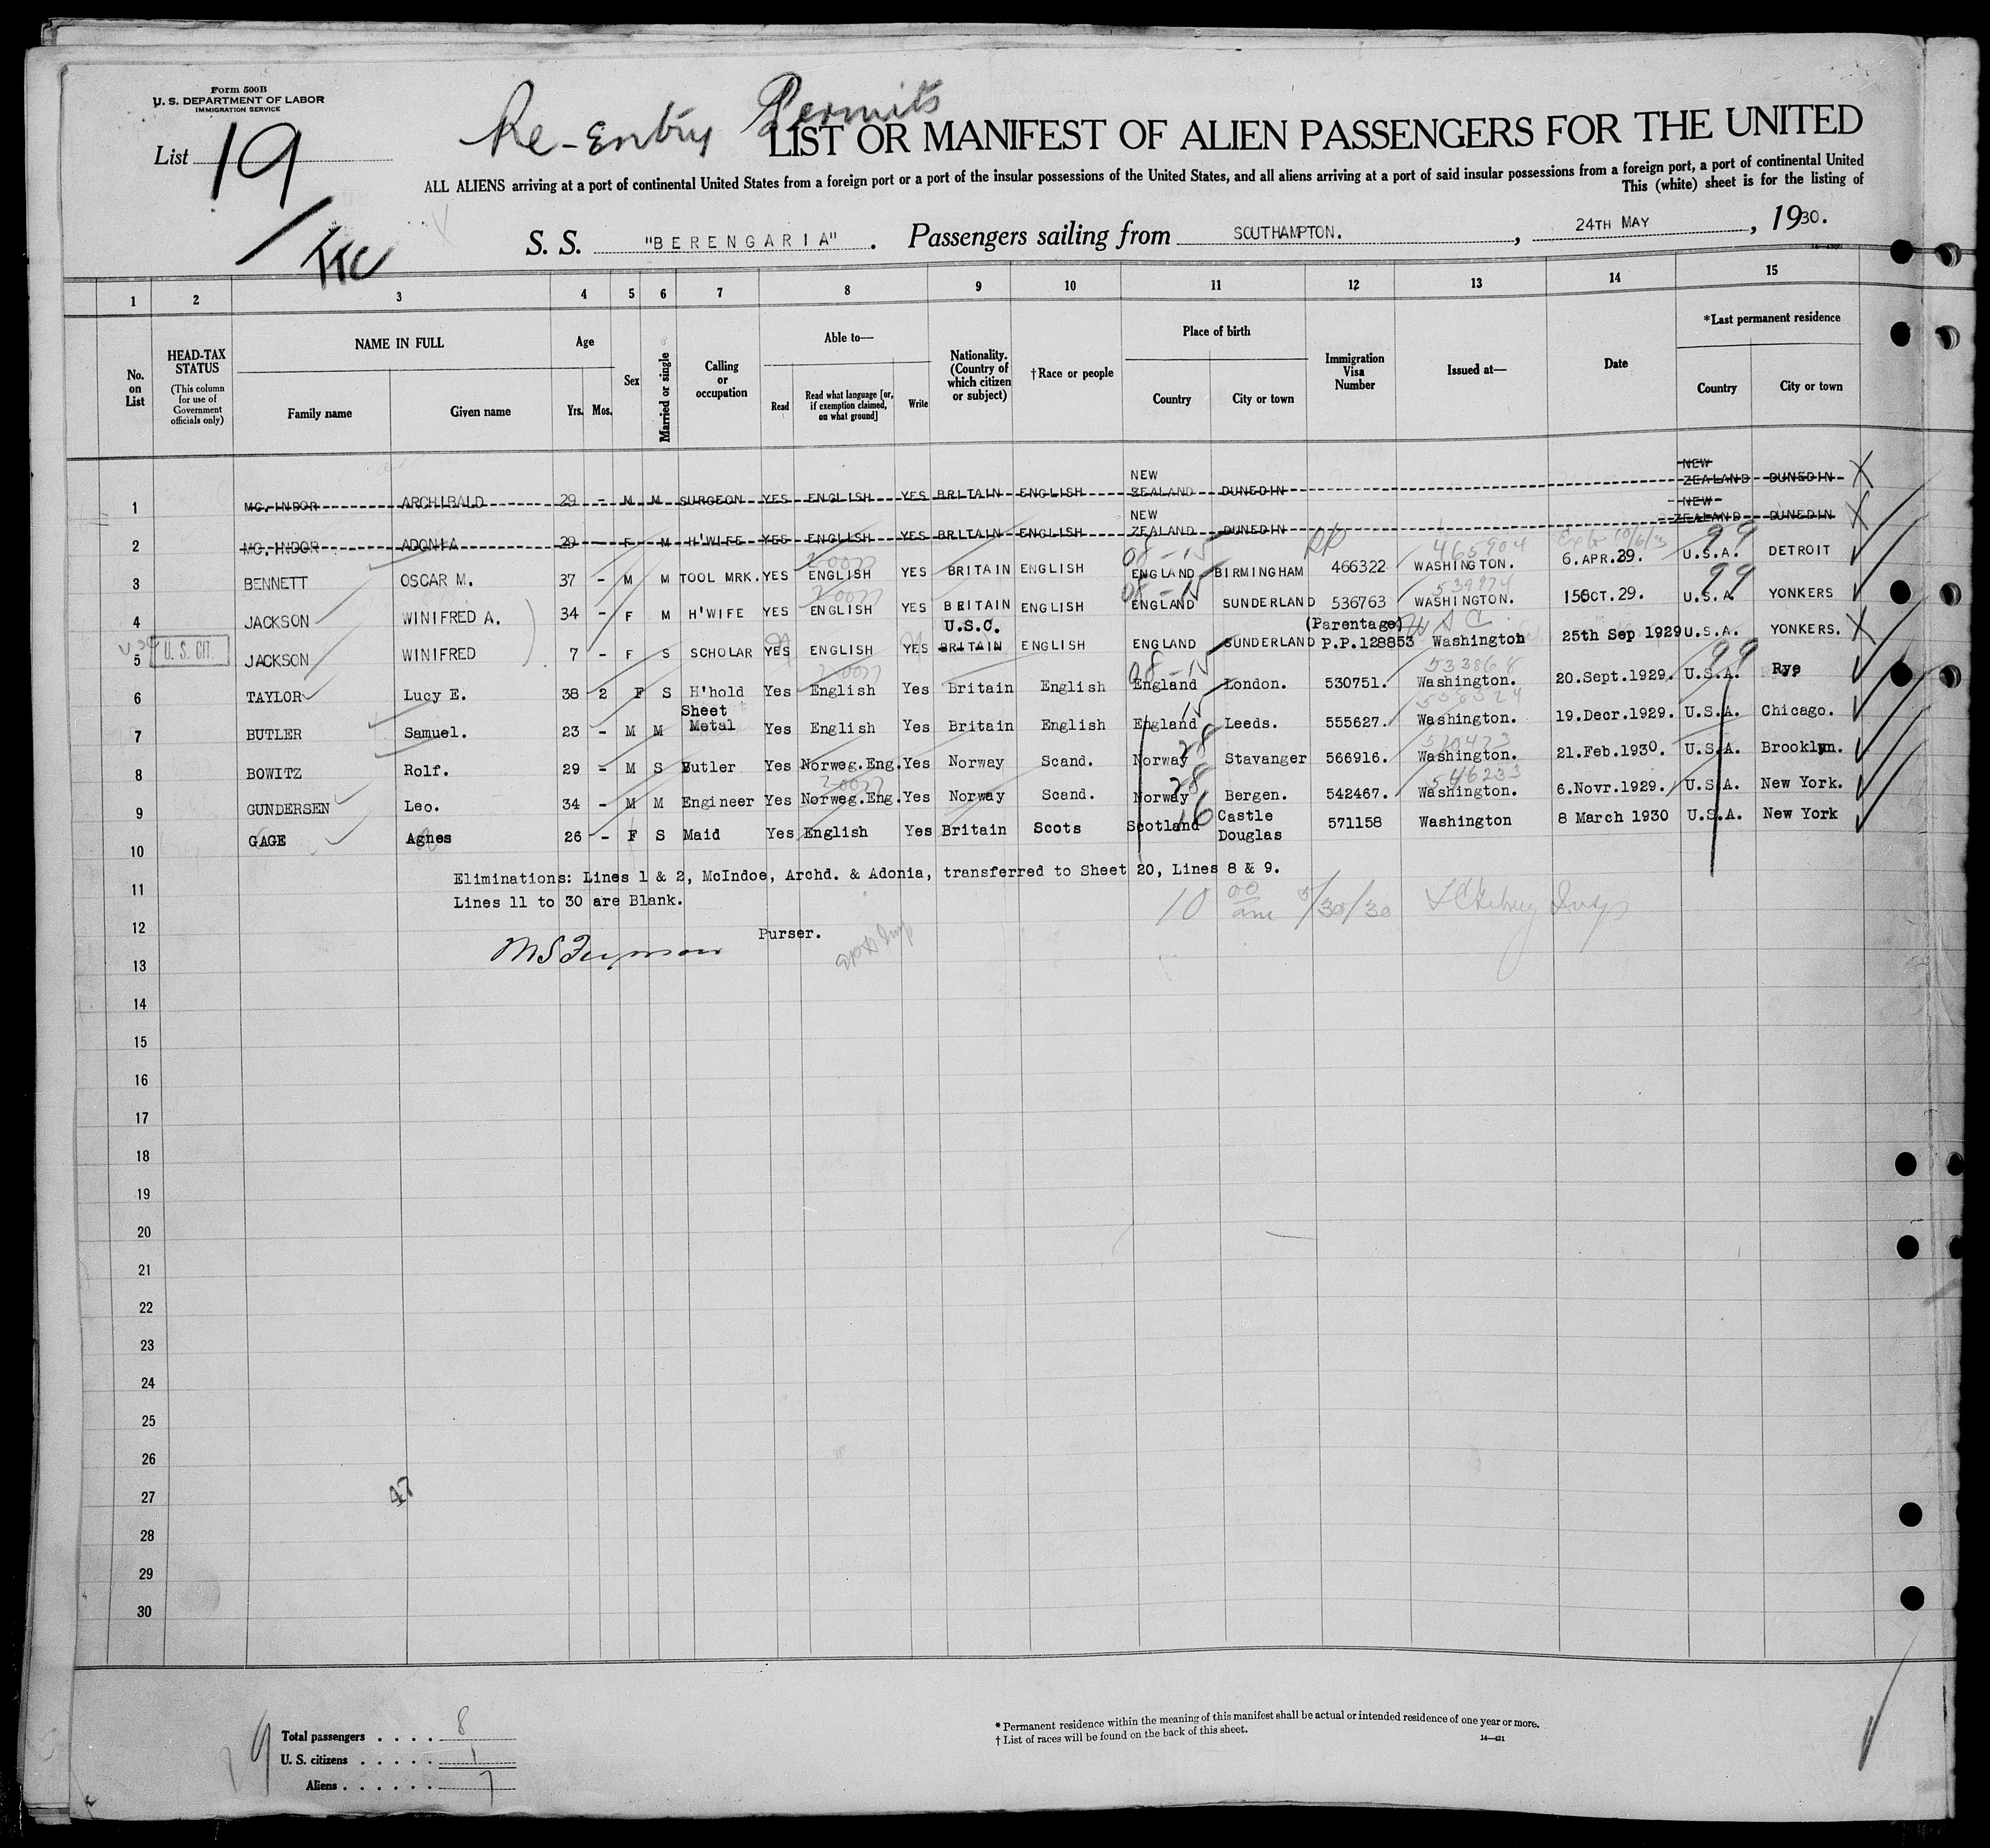 Form 500B
U. S. DEPARTMENT OF LABOR
IMMIGRATION SERVICE
List 19
Re-Entry Permits
LIST OR MANIFEST OF ALIEN PASSENGERS FOR THE UNITED
ALL ALIENS arriving at a port of continental United States from a foreign port or a port of the insular possessions of the United States, and all aliens arriving at a port of said insular possessions from a foreign port, a port of continental United
This (white) sheet is for the listing of
S. S. "BERENGARIA". Passengers sailing from SOUTHAMPTON., 24TH MAY, 1930.
1 2 3 4 5 6 7 8 9 10 11 12 13 14 15
No. on List
HEAD-TAX STATUS
(This column for use of Government officials only)
NAME IN FULL
Family name Given name
Age
Yrs. Mos.
Sex
Married or single
Calling or occupation
Able to—
Read
Read what language [or, if exemption claimed, on what ground]
Write
Nationality. (Country of which citizen or subject)
†Race or people
Place of birth
Country City or town
Immigration Visa Number
Issued at—
Date
*Last permanent residence
Country City or town
1 MC.INDOR ARCHIBALD 29 - M M SURGEON YES ENGLISH YES BRITAIN ENGLISH NEW ZEALAND DUNEDIN NEW ZEALAND DUNEDIN X
2 MC.INDOR ADONIA 29 - F M H'WIFE YES ENGLISH YES BRITAIN ENGLISH NEW ZEALAND DUNEDIN NEW ZEALAND DUNEDIN X
465904 99
3 BENNETT OSCAR M. 37 - M M TOOL MRK. YES ENGLISH YES BRITAIN ENGLISH ENGLAND BIRMINGHAM 466322 WASHINGTON. 6.APR.29. U.S.A. DETROIT
99
4 JACKSON WINIFRED A. 34 - F M H'WIFE YES ENGLISH YES BRITAIN ENGLISH ENGLAND SUNDERLAND 536763 WASHINGTON. 15OCT.29. U.S.A YONKERS
U.S.C. (Parentage)
5 U.S. CIT. JACKSON WINIFRED 7 - F S SCHOLAR YES ENGLISH YES BRITAIN ENGLISH ENGLAND SUNDERLAND P.P.128853 Washington 25th Sep 1929 U.S.A. YONKERS. X
533868 99
6 TAYLOR Lucy E. 38 2 F S H'hold Yes English Yes Britain English England London. 530751. Washington. 20.Sept.1929. U.S.A. Rye
7 BUTLER Samuel. 23 - M M Sheet Metal Yes English Yes Britain English England Leeds. 555627. Washington. 19.Decr.1929. U.S.A. Chicago.
8 BOWITZ Rolf. 29 - M S Butler Yes Norweg.Eng. Yes Norway Scand. Norway Stavanger 566916. Washington. 21.Feb.1930. U.S.A. Brooklyn.
546233
9 GUNDERSEN Leo. 34 - M M Engineer Yes Norweg.Eng. Yes Norway Scand. Norway Bergen. 542467. Washington. 6.Novr.1929. U.S.A. New York.
10 GAGE Agnes 26 - F S Maid Yes English Yes Britain Scots Scotland Castle Douglas 571158 Washington 8 March 1930 U.S.A. New York
11 Eliminations: Lines 1 & 2, McIndoe, Archd. & Adonia, transferred to Sheet 20, Lines 8 & 9.
Lines 11 to 30 are Blank.
10 00 am 5/30/30
12 Purser.
13
14
15
16
17
18
19
20
21
22
23
24
25
26
27
47
28
29
30
Total passengers . . . . 8
U. S. citizens . . . . . 1
Aliens . . . . . . 7
9
* Permanent residence within the meaning of this manifest shall be actual or intended residence of one year or more.
† List of races will be found on the back of this sheet.
14—421